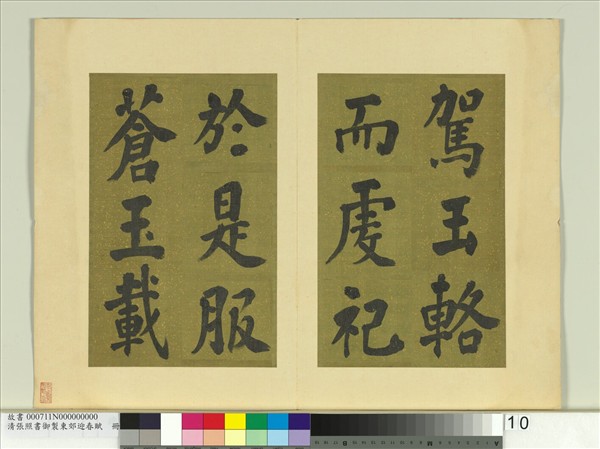 駕玉輅
而虔祀
於是服
蒼玉載
故書 000711N000000000
清張照書御製東郊迎春賦 冊
10